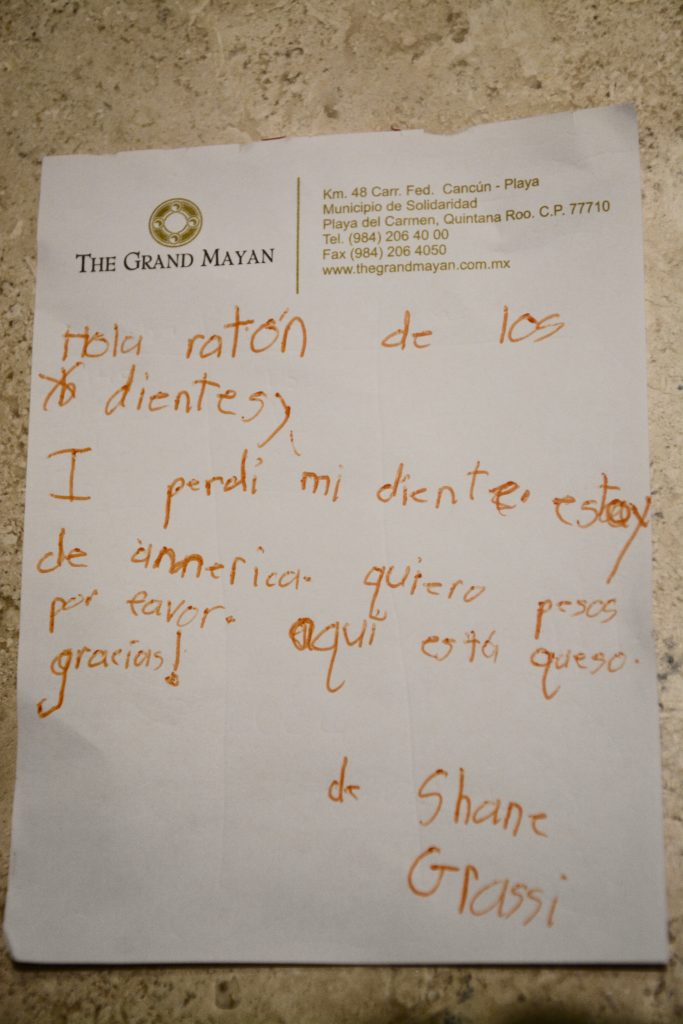 THE GRAND MAYAN
Km. 48 Carr. Fed. Cancún - Playa
Municipio de Solidaridad
Playa del Carmen, Quintana Roo. C.P. 77710
Tel. (984) 206 40 00
Fax (984) 206 4050
www.thegrandmayan.com.mx
Hola ratón de los
dientes,
I perdí mi diente. estoy
de annerica. quiero pesos
por favor. aquí está queso.
gracias!
de Shane
Grassi